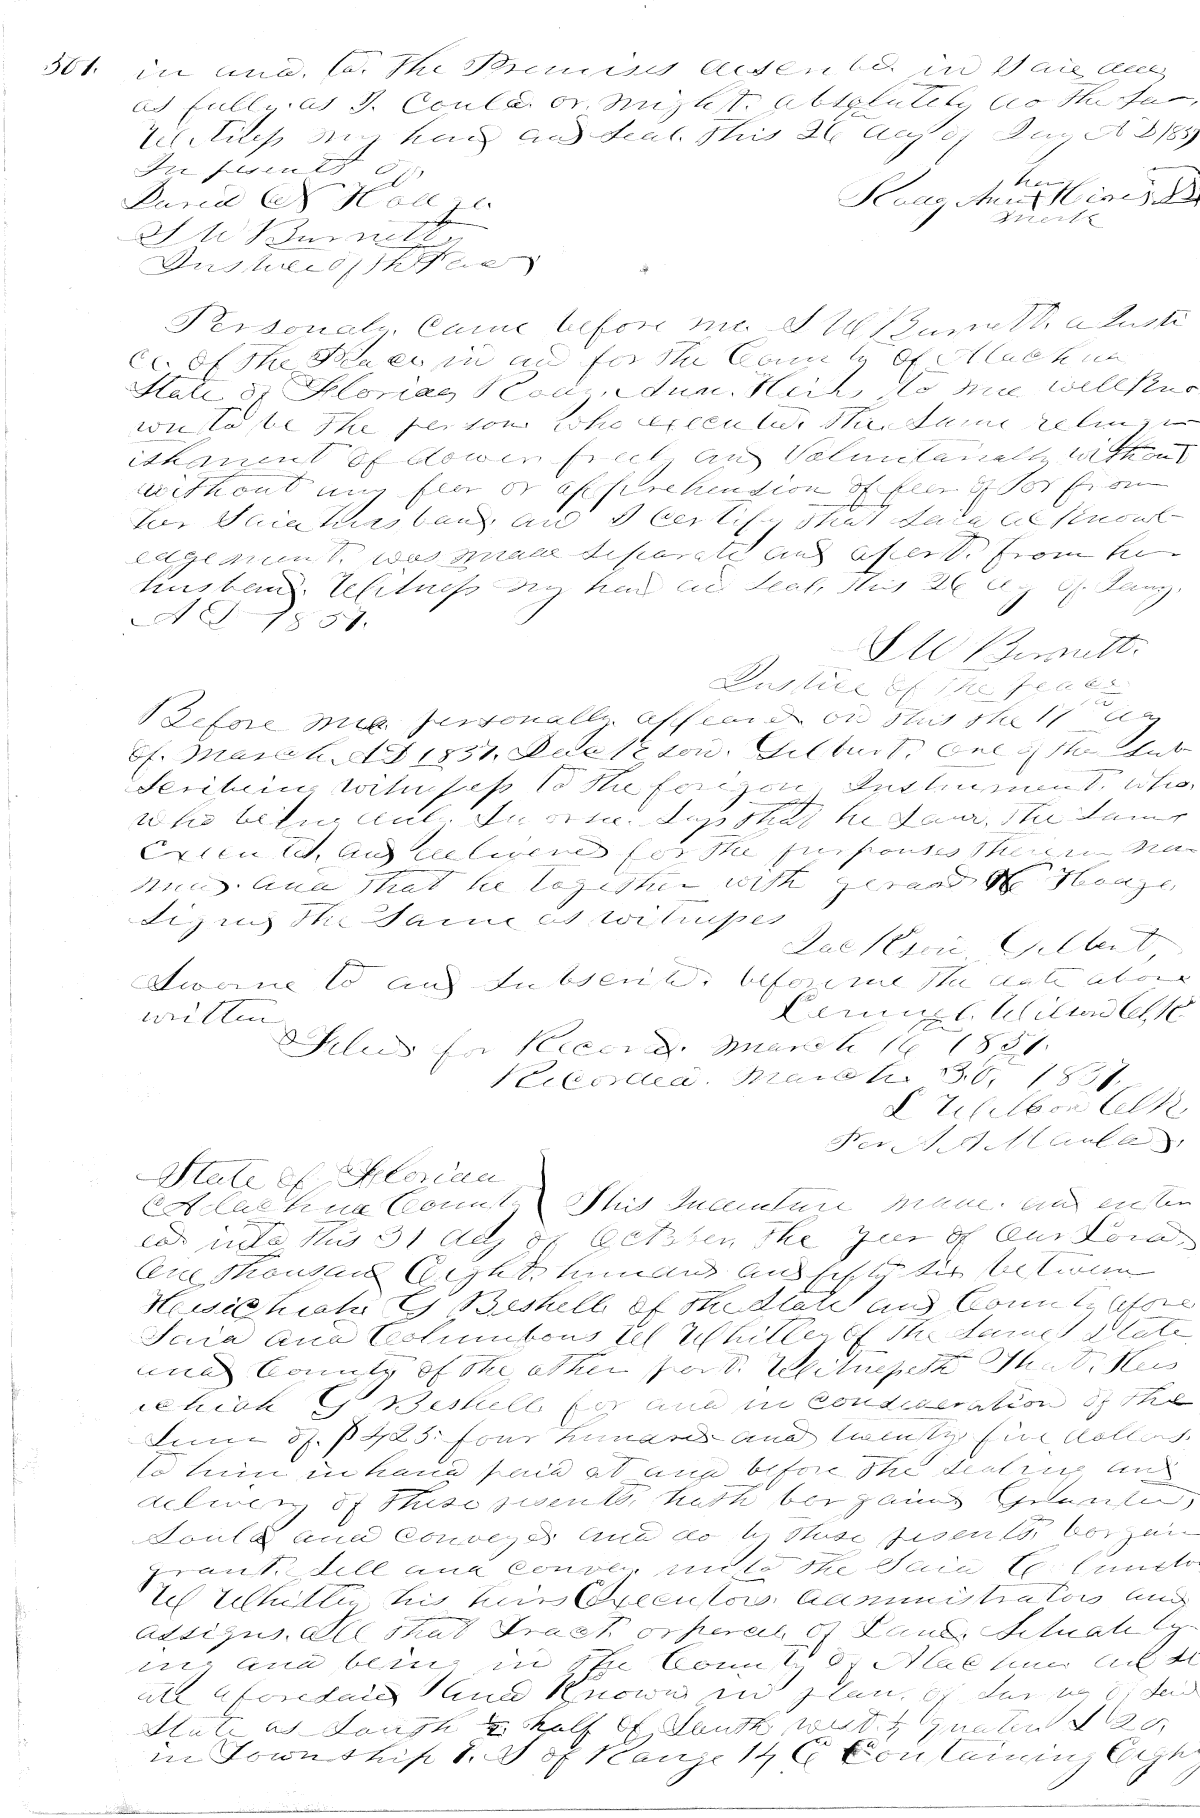 301. in and. to. The Premises desenbd. in Said deed
as fully. as I. Could. or. might. absolutely do the Sam
Witness my hand and Seal. This 26 day of Jany A D 1857
In presents of.
David W Hodge.
S W Burnett
Justice of the Peace
her
Ann Hines
mark
Personaly. Came before me. S W Burnett. a Justi
ce. of the Peace, in and for the County of Alachua
State of Florida, Ann. to me well Kno
wn to be the person who executed. the Same relinqu
ishment of dower freely and Voluntarially without
without any feer or apprehension of feer of or from
her Said husband. and I certify that Said acknowl
edgement. was made Separate and apert. from her
husband. Witness my hand and Seal, this 26 day of. Jany.
A D 1857.
S W Burnett.
Justice of the peace
Before me. personally. appeard on this the 11th day
of. March. A D 1857. Jackson. Gilbert. one of the Sub
Scribeing witness to the foregon Instrument. who.
who being duly. Sworn. Says that he Saw. the Same
Executed, and delivered for the purposes therein na
med. and that he together with W Hodge,
Signed the Same as witness
Jackson Gilbert
Sworne to and Subscribd. before me the date above
written
Lemuel Wilson Clk
Filed for Record. March 16th 1857.
Recorded. March. 30, 1857.
L Wilson Clk
Per
State of Florida
Alachua County } This Indenture made. and enter
ed into this 31 day of October, the yeer of Our Lord
One thousand Eight. hundred and fifty six between
G Beshell of the State and County afore
Said and Columbous W Whitley of the Same State
and County of the other part. Witnesseth That.
G Beshell for and in Consideration of the
Sum of. $425. four hundred and twenty five dollars.
to him in hand paid at and before the Sealing and
delivery of these presents, hath bargained Granted,
Sould and Conveyed and do by these presents bargain
grant. Sell and convey unto the Said Columbo
W Whitley his heirs Executors administrators and
assigns. all that Tract. or parcel of Land. Situate ly
ing and being in the County of Alachua and St
ate aforesaid and Known in plan. of of Said
State as South ½ half of South west ¼ quarter S 20,
in Township S of Range 19 E Containing Eighty